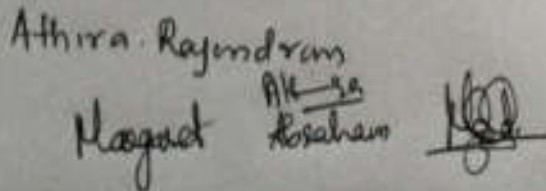 Athira. Rajendran
Aksa
Margaret Abraham